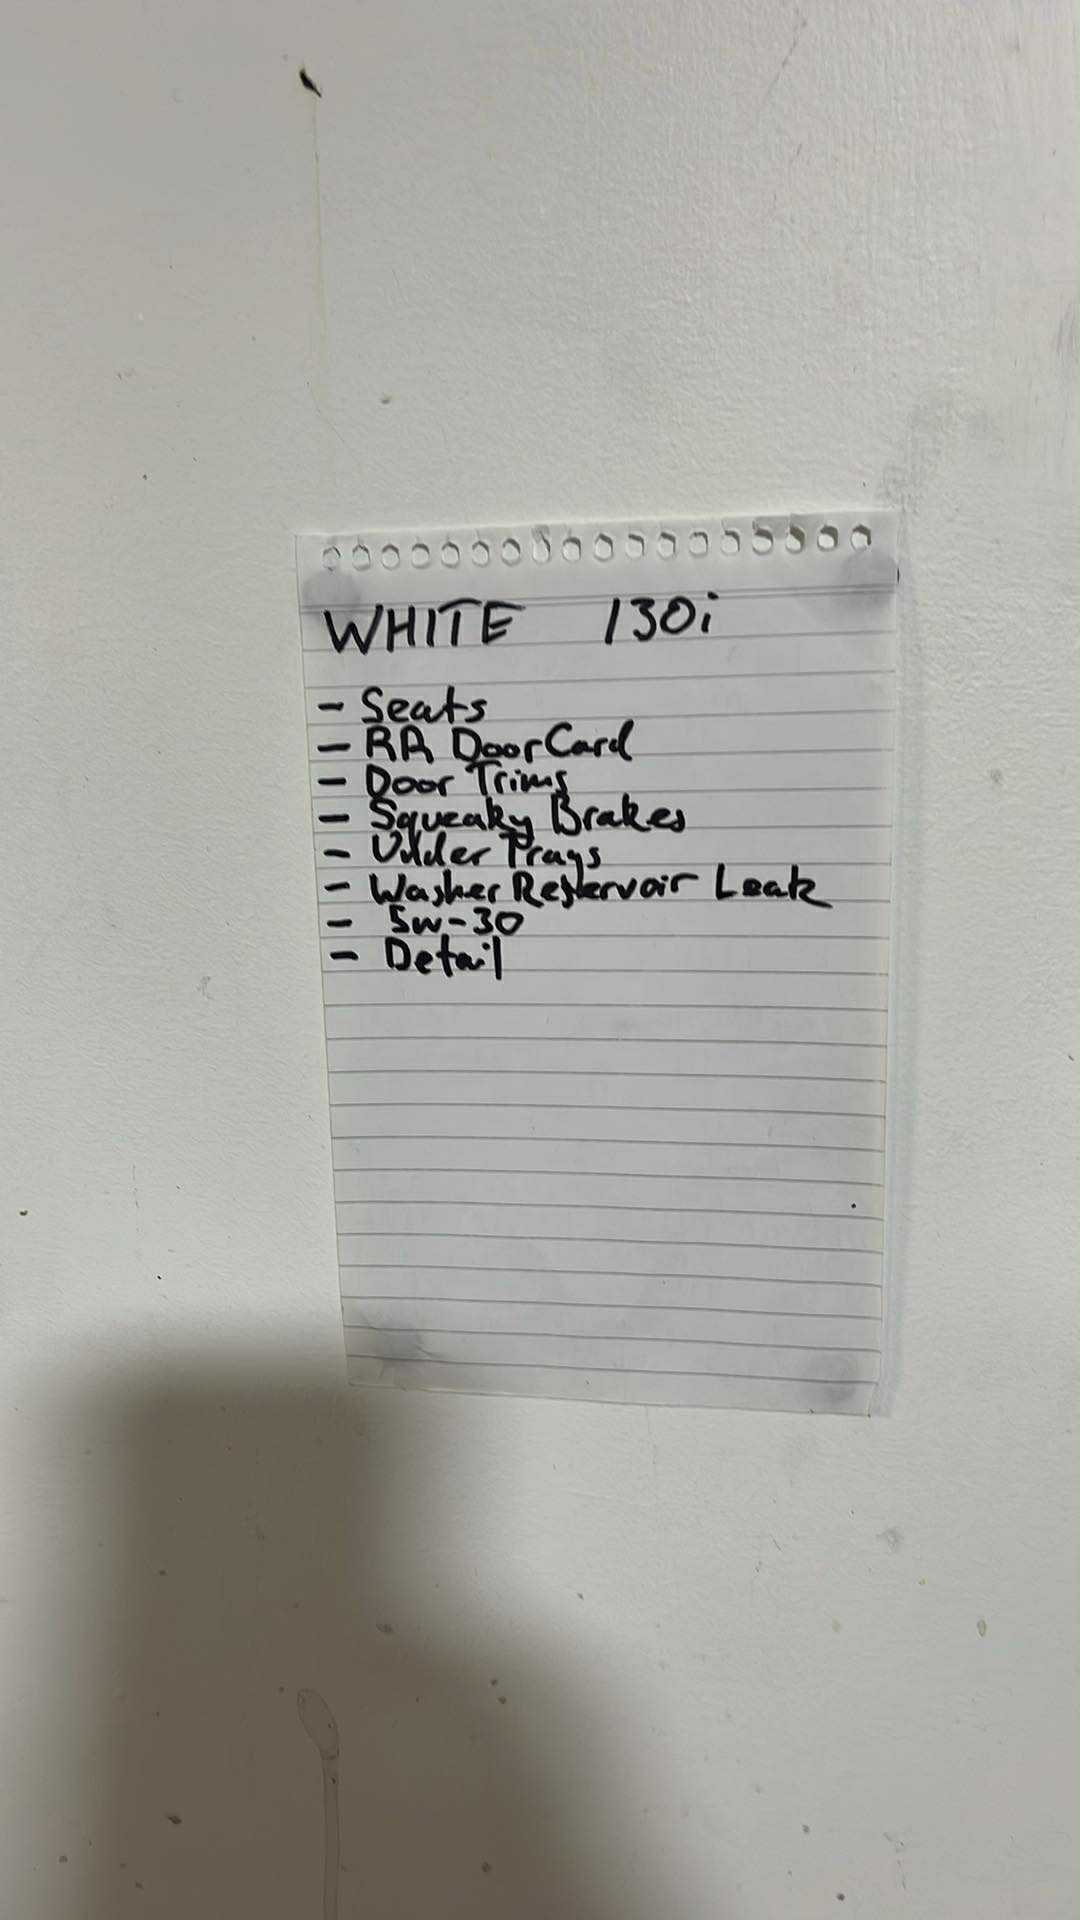 WHITE 130i
- Seats
- RR Door Card
- Door Trims
- Squeaky Brakes
- Under Trays
- Washer Reservoir Leak
- 5w-30
- Detail